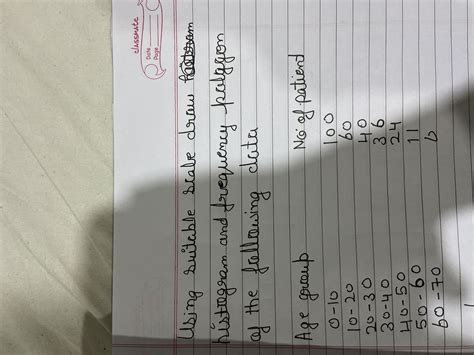 classmate
Date
Page
Using suitable scale draw
histogram and frequency polygon
of the following data
Age group No of patient
0-10 100
10-20 60
20-30 40
30-40 36
40-50 24
50-60 11
60-70 6